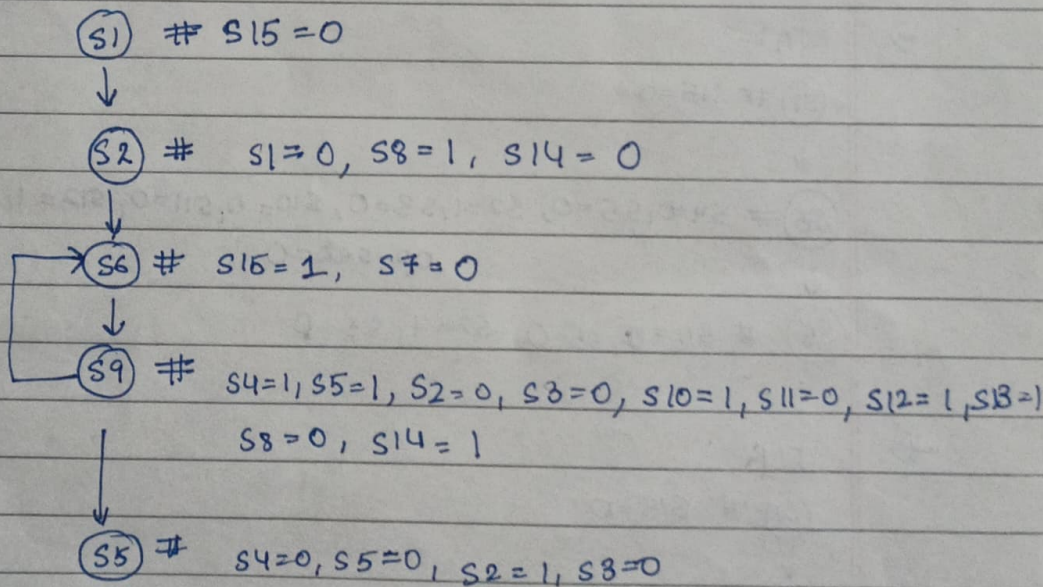 S1 # S15=0
S2 # S1=0, S8=1, S14=0
S6 # S15=1, S7=0
S9 # S4=1, S5=1, S2=0, S3=0, S10=1, S11=0, S12=1, S13=1
S8=0, S14=1
S5 # S4=0, S5=0, S2=1, S3=0